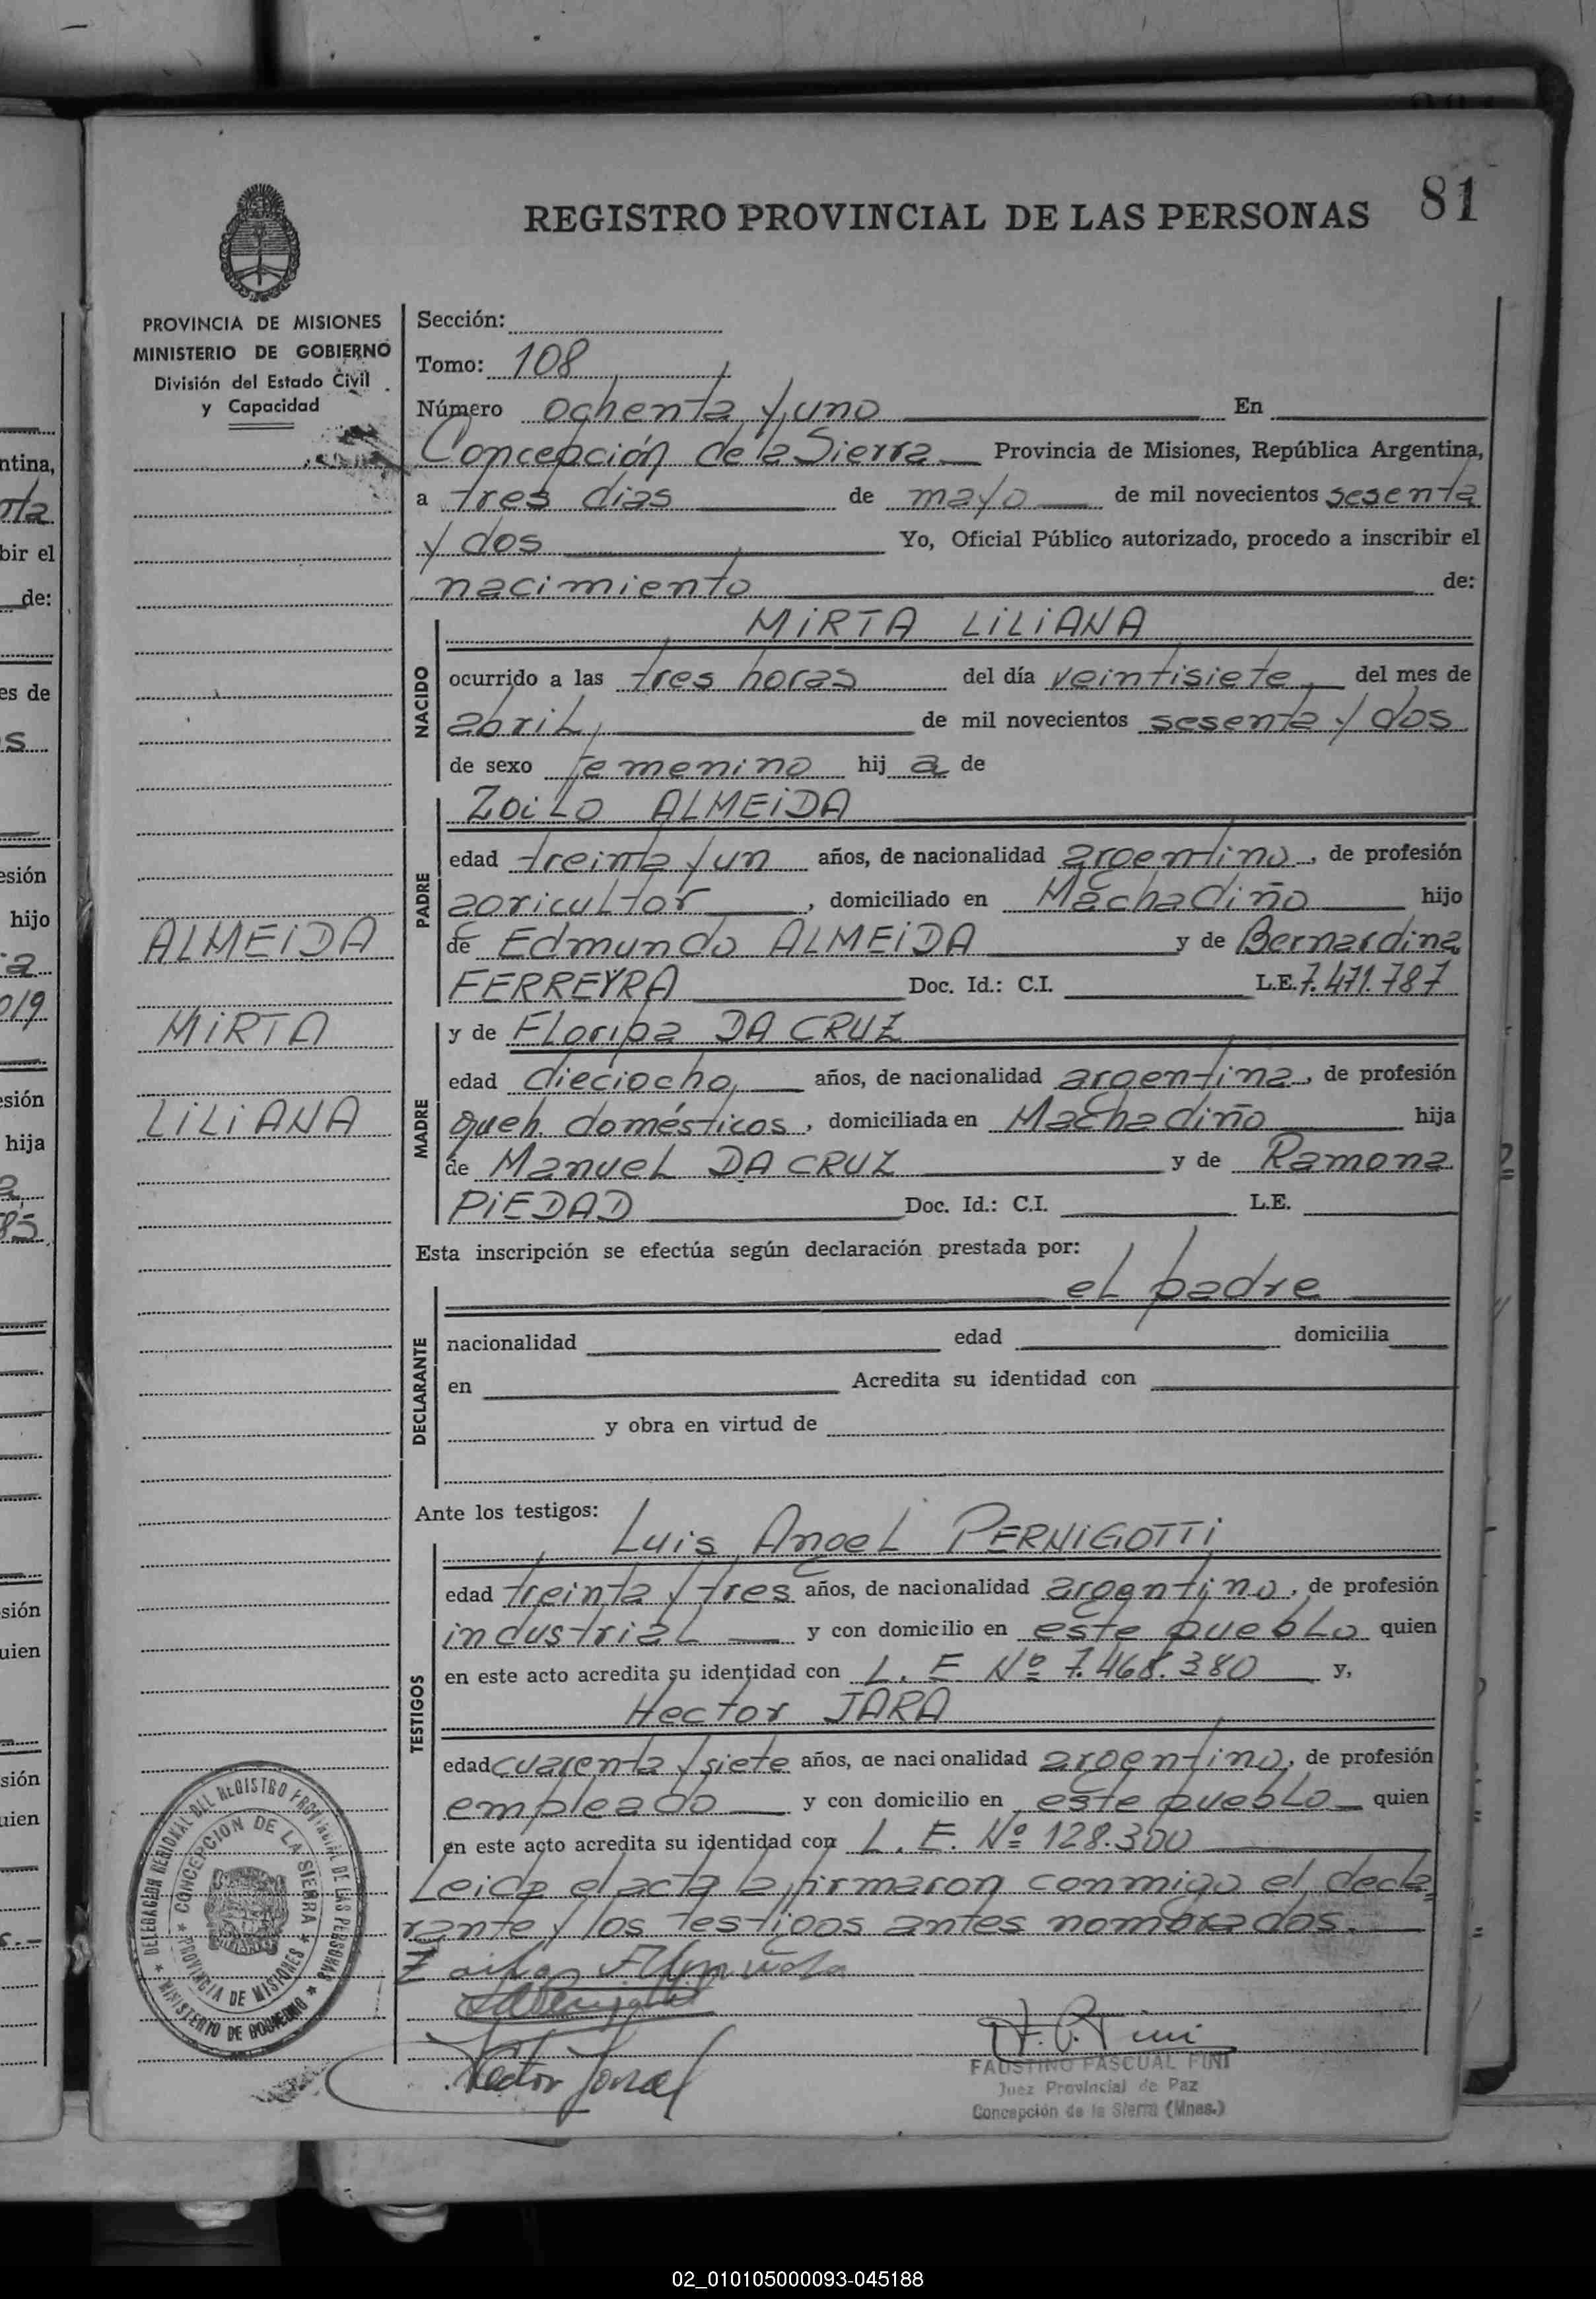 81
REGISTRO PROVINCIAL DE LAS PERSONAS
PROVINCIA DE MISIONES
MINISTERIO DE GOBIERNO
División del Estado Civil
y Capacidad
Sección:
Tomo: 108
Número ochenta y uno En
Concepción de la Sierra Provincia de Misiones, República Argentina,
a tres dias de mayo de mil novecientos sesenta
y dos Yo, Oficial Público autorizado, procedo a inscribir el
nacimiento de:
NACIDO
MIRTA LILIANA
ocurrido a las tres horas del día veintisiete del mes de
abril de mil novecientos sesenta y dos
de sexo femenino hij a de
PADRE
Zoilo ALMEIDA
edad treinta y un años, de nacionalidad argentino, de profesión
agricultor, domiciliado en Machadiño hijo
de Edmundo ALMEIDA y de Bernardina
FERREYRA Doc. Id.: C.I. L.E. 7.471.787
ALMEIDA
MIRTA
LILIANA
MADRE
y de Floripa DA CRUZ
edad dieciocho años, de nacionalidad argentina, de profesión
queh. domésticos, domiciliada en Machadiño hija
de Manuel DA CRUZ y de Ramona
PIEDAD Doc. Id.: C.I. L.E.
Esta inscripción se efectúa según declaración prestada por:
el padre
DECLARANTE
nacionalidad edad domicilia
en Acredita su identidad con
y obra en virtud de
Ante los testigos:
TESTIGOS
Luis Angel PERNIGOTTI
edad treinta y tres años, de nacionalidad argentino, de profesión
industrial y con domicilio en este pueblo quien
en este acto acredita su identidad con L. E Nº 7.468.380 y,
Hector JARA
edad cuarenta y siete años, de nacionalidad argentino, de profesión
empleado y con domicilio en este pueblo quien
en este acto acredita su identidad con L. E. Nº 128.300
Leida el acta la firmaron conmigo el decla
rante y los testigos antes nombrados.
Zoilo Almeida
F. P. Fini
FAUSTINO PASCUAL FINI
Juez Provincial de Paz
Concepción de la Sierra (Mnes.)
DELEGACION REGIONAL DEL REGISTRO PROVINCIAL DE LAS PERSONAS
MINISTERIO DE GOBIERNO
CONCEPCION DE LA SIERRA
PROVINCIA DE MISIONES
02_010105000093-045188